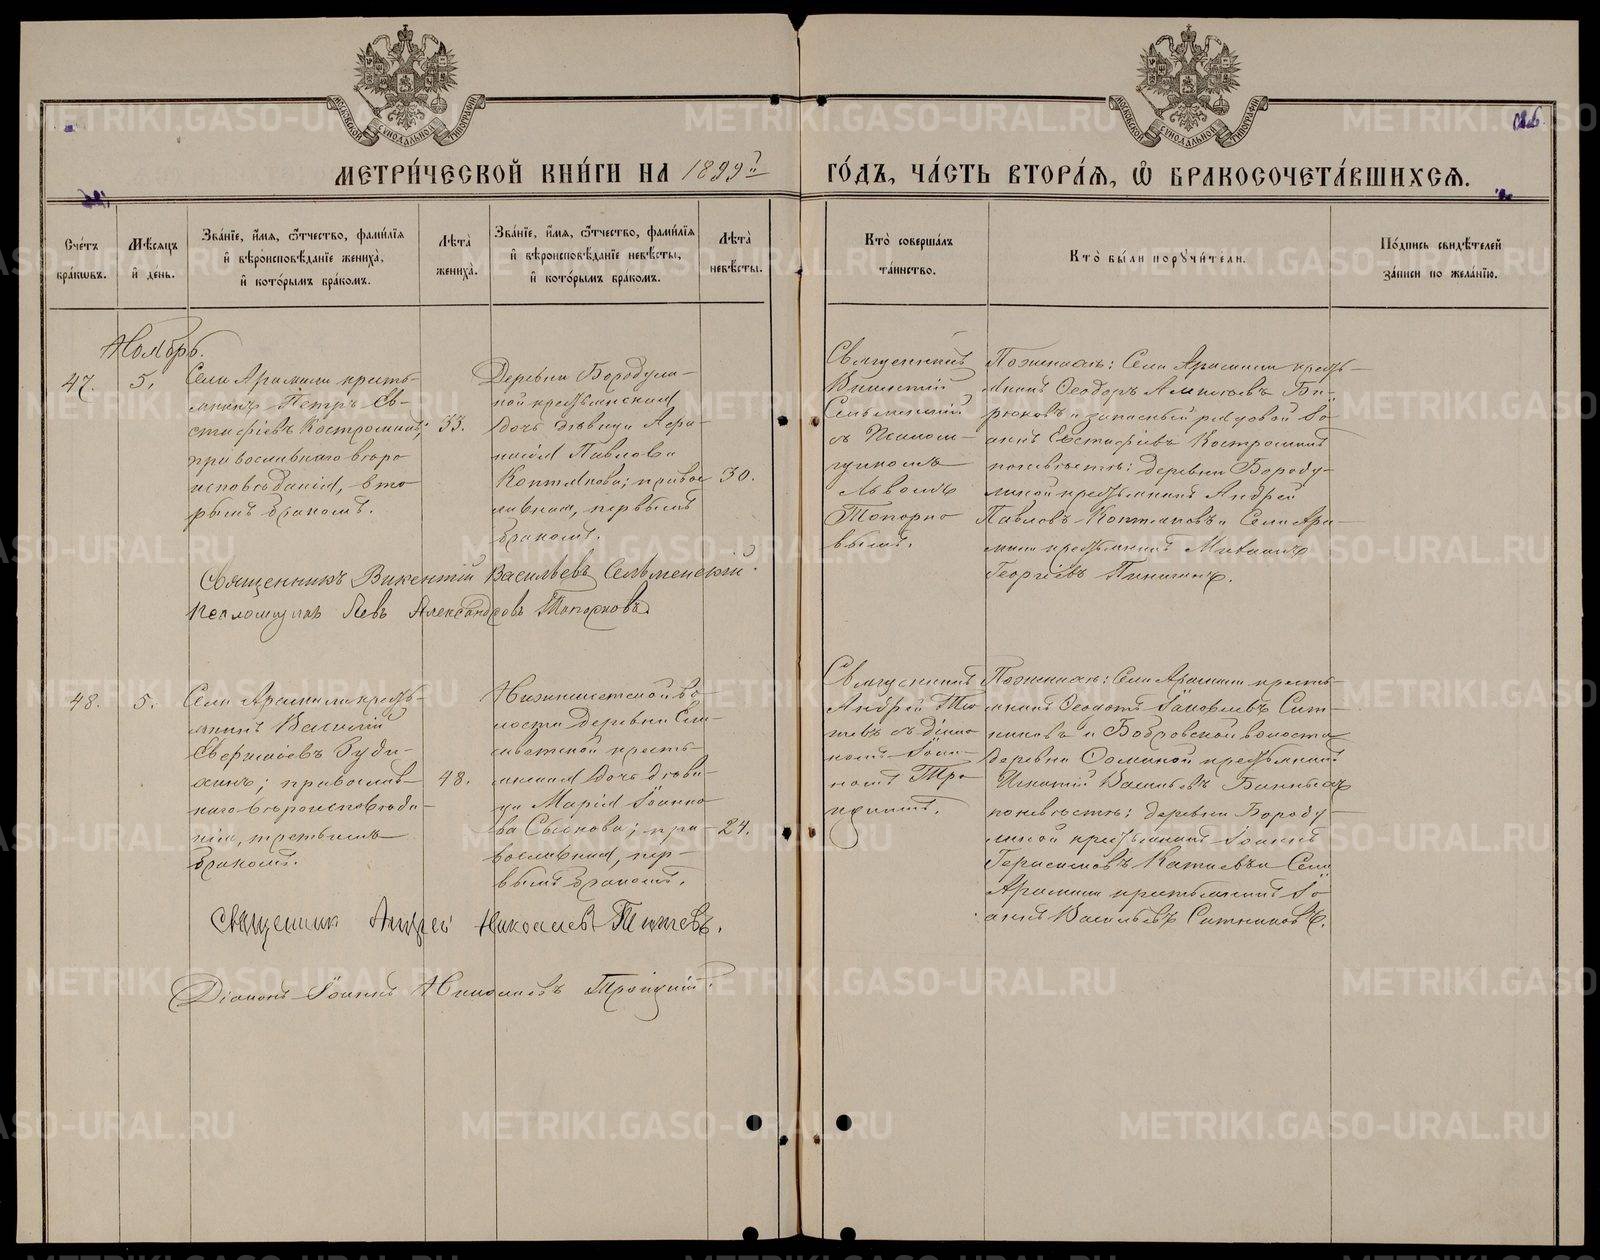 МЕТРИ́ЧЕСКОЙ КНИ́ГИ НА 1899й ГО́ДЪ, ЧА́СТЬ ВТОРА́Я, Ѡ БРАКОСОЧЕТА́ВШИХСЯ.
Сче́тъ бра́кѡвъ.
Мѣ́сяцъ и де́нь.
Зва́нїе, и́мя, ѻ́тчество, фами́лїя и вѣроисповѣ́данїе жениха̀, и кото́рымъ бра́комъ.
Лѣта̀ жениха̀.
Зва́нїе, и́мя, ѻ́тчество, фами́лїя и вѣроисповѣ́данїе невѣ́сты, и кото́рымъ бра́комъ.
Лѣта̀ невѣ́сты.
Кто̀ соверша́лъ та́инство.
Кто̀ бы́ли порꙋчи́тели.
По́дпись свидѣ́телей за́писи по жела́нїю.
Ноябрь.
47.
5.
Села Арамили кресть-
янинъ Петръ Ев-
стафіевъ Костроминъ;
православнаго вѣро
исповѣданія, вто
рымъ бракомъ.
33.
Деревни Бородули-
ной крестьянская
дочь дѣвица Афа-
насія Павлова
Коптякова; правос
лавная, первымъ
бракомъ.
30.
Священникъ
Викентій
Сельменскій
съ Псалом-
щикомъ
Львомъ
Топорко
вымъ.
По женихѣ: Села Арамили кресть-
янинъ Ѳеодоръ Алексѣевъ Би-
рюковъ и запасный рядовой Іо-
аннъ Евстафіевъ Костроминъ
по невѣстѣ: деревни Бороду-
линой крестьянинъ Андрей
Павловъ Коптяковъ и Села Ара-
мили крестьянинъ Михаилъ
Георгіевъ
Священникъ Викентій Васильевъ Сельменскій.
Псаломщикъ Левъ Александровъ Топорковъ.
48.
5.
Села Арамили кресть-
янинъ Василій
Зуди-
хинъ; православ-
наго вѣроисповѣда-
нія, третьимъ
бракомъ.
48.
во-
лости деревни Ели-
саветской кресть-
янская дочь дѣви-
ца Марія Іоанно
ва; пра-
вославная, пер-
вымъ бракомъ.
24.
Священникъ
Андрей Ти
товъ съ діако
номъ Іоан-
номъ Тро
ицкимъ.
По женихѣ: Села Арамили кресть-
янинъ Ѳеодотъ Іаковлевъ Сит-
никовъ и Бобровской волости
деревни крестьянинъ
Игнатій Васильевъ
по невѣстѣ: деревни Бороду-
линой крестьянинъ Іоаннъ
Герасимовъ Катаевъ и Села
Арамили крестьянинъ Іо-
аннъ Васильевъ Ситниковъ.
Священник Андрей Николаевъ Титовъ.
Діаконъ Іоаннъ Николаевъ Троицкій.
METRIKI.GASO-URAL.RU